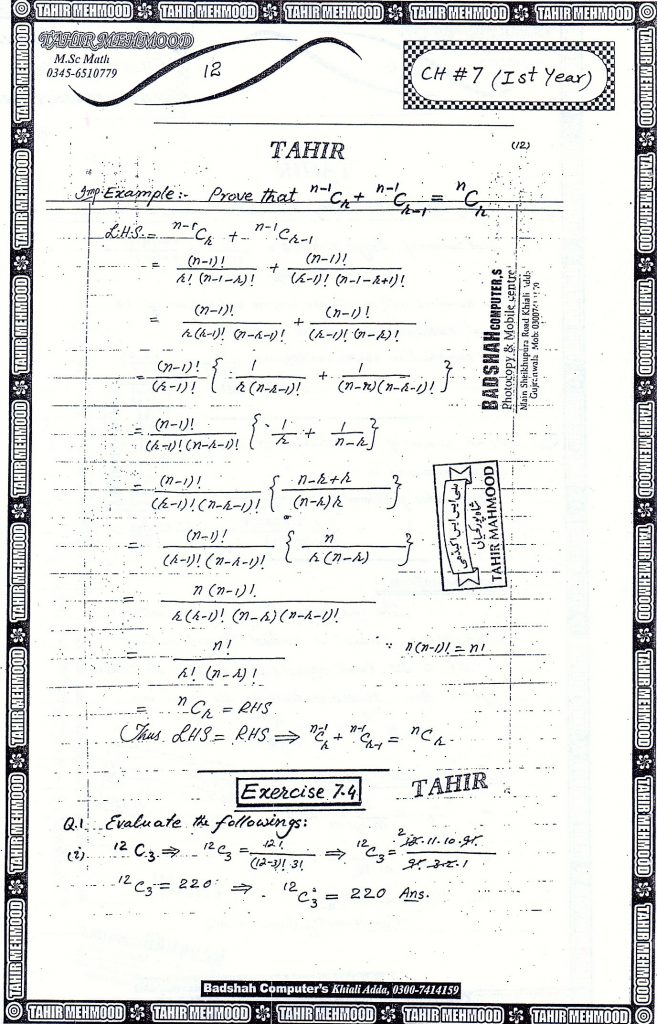 TAHIR MEHMOOD TAHIR MEHMOOD TAHIR MEHMOOD TAHIR MEHMOOD TAHIR MEHMOOD
TAHIR MEHMOOD
M.Sc Math
0345-6510779
12
CH # 7 (Ist Year)
TAHIR
(12)
Imp: Example:- Prove that ⁿ⁻¹Cᵣ + ⁿ⁻¹Cᵣ₋₁ = ⁿCᵣ
L.H.S. = ⁿ⁻¹Cᵣ + ⁿ⁻¹Cᵣ₋₁
= (n-1)! / r! (n-1-r)! + (n-1)! / (r-1)! (n-1-r+1)!
= (n-1)! / r(r-1)! (n-r-1)! + (n-1)! / (r-1)! (n-r)!
= (n-1)! / (r-1)! { 1 / r(n-r-1)! + 1 / (n-r)(n-r-1)! }
= (n-1)! / (r-1)! (n-r-1)! { 1/r + 1/n-r }
= (n-1)! / (r-1)! (n-r-1)! { n-r+r / (n-r)r }
= (n-1)! / (r-1)! (n-r-1)! { n / r(n-r) }
= n (n-1)! / r(r-1)! (n-r)(n-r-1)!
= n! / r! (n-r)! ∵ n(n-1)! = n!
= ⁿCᵣ = RHS
Thus LHS = RHS ⇒ ⁿ⁻¹Cᵣ + ⁿ⁻¹Cᵣ₋₁ = ⁿCᵣ
BADSHAH COMPUTER,S
Photocopy & Mobile centre
Main Sheikhupura Road Khiali Adda
Gujranwala Mob:
TAHIR MAHMOOD
Exercise 7.4
TAHIR
Q.1 Evaluate the followings:
(i) ¹²C₃ ⇒ ¹²C₃ = 12! / (12-3)! 3! ⇒ ¹²C₃ = 2 12·11·10·9! / 9! 3·2·1
¹²C₃ = 220 ⇒ ¹²C₃ = 220 Ans.
Badshah Computer's Khiali Adda, 0300-7414159
TAHIR MEHMOOD TAHIR MEHMOOD TAHIR MEHMOOD TAHIR MEHMOOD TAHIR MEHMOOD